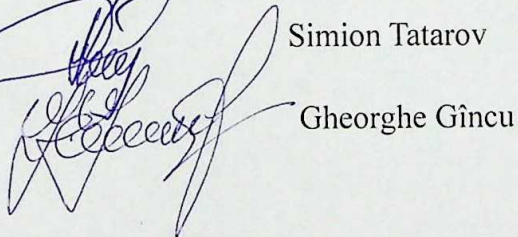 Simion Tatarov
Gheorghe Gîncu